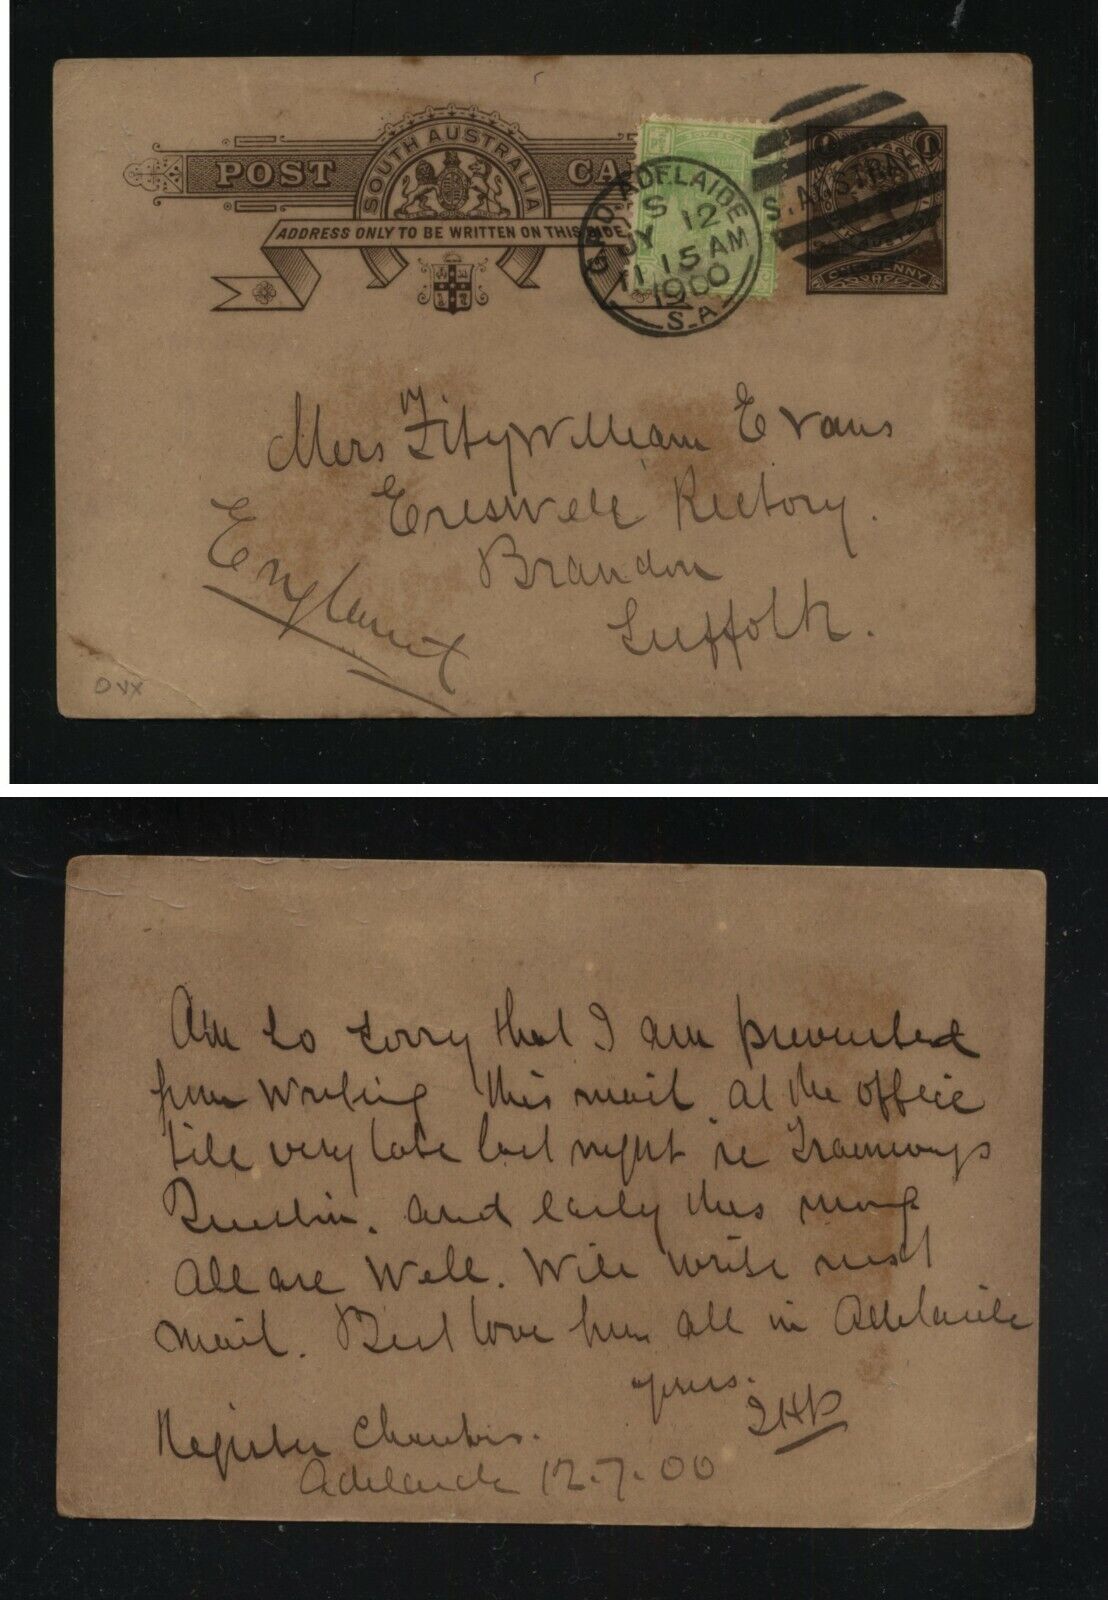 POST CA
SOUTH AUSTRALIA
ADDRESS ONLY TO BE WRITTEN ON THIS SIDE
G.P.O. ADELAIDE
S
JY 12
11 15 AM
1900
S.A
S. AUSTRAL
1
ONE PENNY
Mers FitzWilliam Evans
Ereswell Rectory.
Brandon
Suffolk.
England
OVX
Am so sorry that I am prevented
from Writing this mail. at the office
till very late last night re Tramways
and early this morng
All are Well. Will write next
mail. Best love from all in Adelaide
yours.
Register Chambrs.
Adelaide 12.7.00